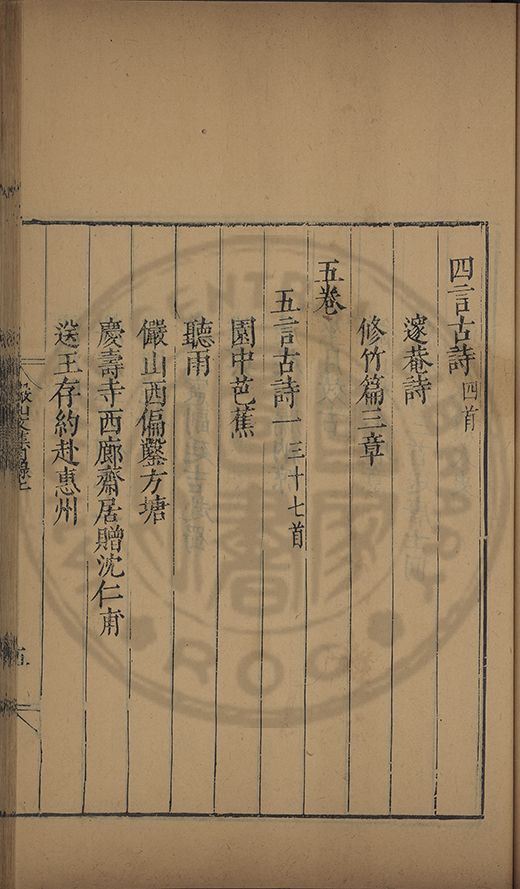 四言古詩四首
邃菴詩
修竹篇三章
五卷
五言古詩一三十七首
園中芭蕉
聽雨
儼山西偏鑿方塘
慶壽寺西廊齋居贈沈仁甫
送王存約赴惠州